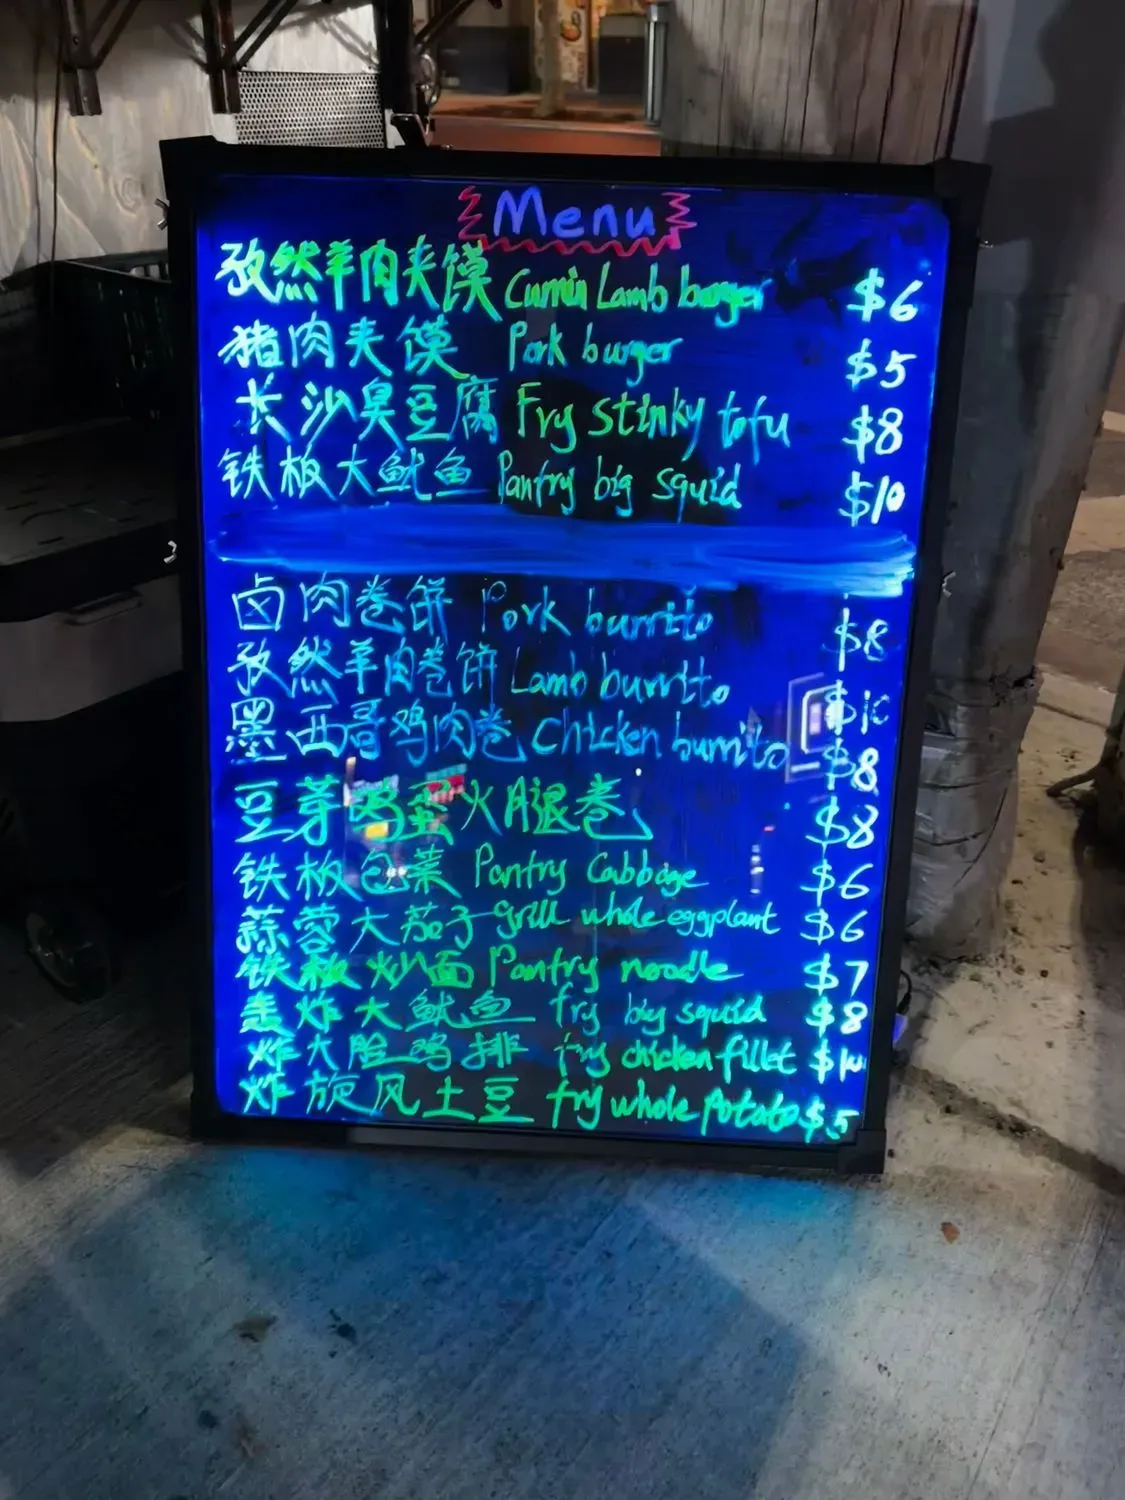 Menu
孜然羊肉夹馍 Cumin Lamb burger $6
猪肉夹馍 Pork burger $5
长沙臭豆腐 Fry stinky tofu $8
铁板大鱿鱼 Pantry big squid $10
卤肉卷饼 Pork burrito $8
孜然羊肉卷饼 Lamb burrito $10
墨西哥鸡肉卷 Chicken burrito $8
豆芽鸡蛋火腿卷 $8
铁板包菜 Pantry Cabbage $6
蒜蓉大茄子 grill whole eggplant $6
铁板炒面 Pantry noodle $7
轰炸大鱿鱼 fry big squid $8
炸大脸鸡排 fry chicken fillet $10
炸旋风土豆 fry whole potato $5